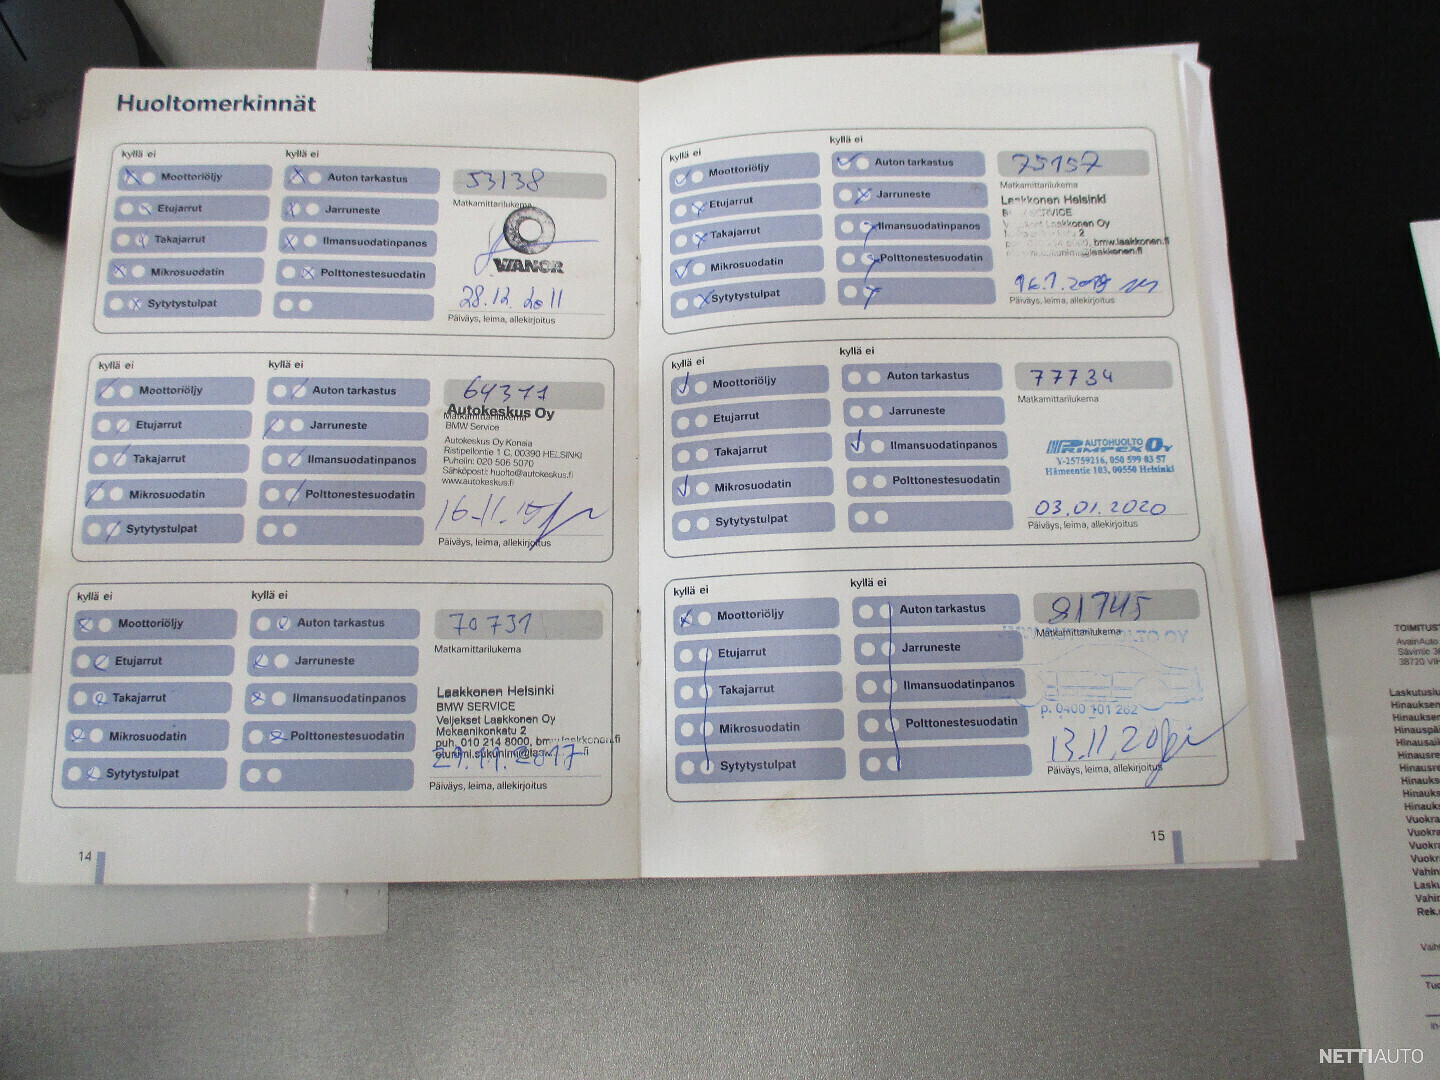 Huoltomerkinnät
kyllä ei
kyllä ei
Moottoriöljy
Auton tarkastus
53138
Etujarrut
Jarruneste
Matkamittarilukema
Takajarrut
Ilmansuodatinpanos
Mikrosuodatin
Polttonestesuodatin
WANOR
Sytytystulpat
28.12.2011
Päiväys, leima, allekirjoitus
kyllä ei
kyllä ei
Moottoriöljy
Auton tarkastus
64371
Autokeskus Oy
Matkamittarilukema
Etujarrut
Jarruneste
BMW Service
Autokeskus Oy Konala
Takajarrut
Ilmansuodatinpanos
Ristipellontie 1 C, 00390 HELSINKI
Puhelin: 020 506 5070
Sähköposti: huolto@autokeskus.fi
www.autokeskus.fi
Mikrosuodatin
Polttonestesuodatin
Sytytystulpat
16.11.15
Päiväys, leima, allekirjoitus
kyllä ei
kyllä ei
Moottoriöljy
Auton tarkastus
70731
Matkamittarilukema
Etujarrut
Jarruneste
Takajarrut
Ilmansuodatinpanos
Laakkonen Helsinki
BMW SERVICE
Veljekset Laakkonen Oy
Mekaanikonkatu 2
Mikrosuodatin
Polttonestesuodatin
puh. 010 214 8000, bmw.laakkonen.fi
etunimi.sukunimi@laakkonen.fi
Sytytystulpat
Päiväys, leima, allekirjoitus
14
kyllä ei
kyllä ei
Moottoriöljy
Auton tarkastus
75157
Matkamittarilukema
Etujarrut
Jarruneste
Laakkonen Helsinki
Takajarrut
Ilmansuodatinpanos
Laakkonen Oy
2
bmw.laakkonen.fi
@laakkonen.fi
Mikrosuodatin
Polttonestesuodatin
Sytytystulpat
Päiväys, leima, allekirjoitus
kyllä ei
kyllä ei
Moottoriöljy
Auton tarkastus
77734
Matkamittarilukema
Etujarrut
Jarruneste
Takajarrut
Ilmansuodatinpanos
AUTOHUOLTO
RIMPEX OY
Y-25759216, 050 599 03 57
Hämeentie 103, 00550 Helsinki
Mikrosuodatin
Polttonestesuodatin
Sytytystulpat
03.01.2020
Päiväys, leima, allekirjoitus
kyllä ei
kyllä ei
Moottoriöljy
Auton tarkastus
81745
Matkamittarilukema
Etujarrut
Jarruneste
Takajarrut
Ilmansuodatinpanos
p. 0400 101 262
Mikrosuodatin
Polttonestesuodatin
13.11.20
Sytytystulpat
Päiväys, leima, allekirjoitus
15
NETTIAUTO